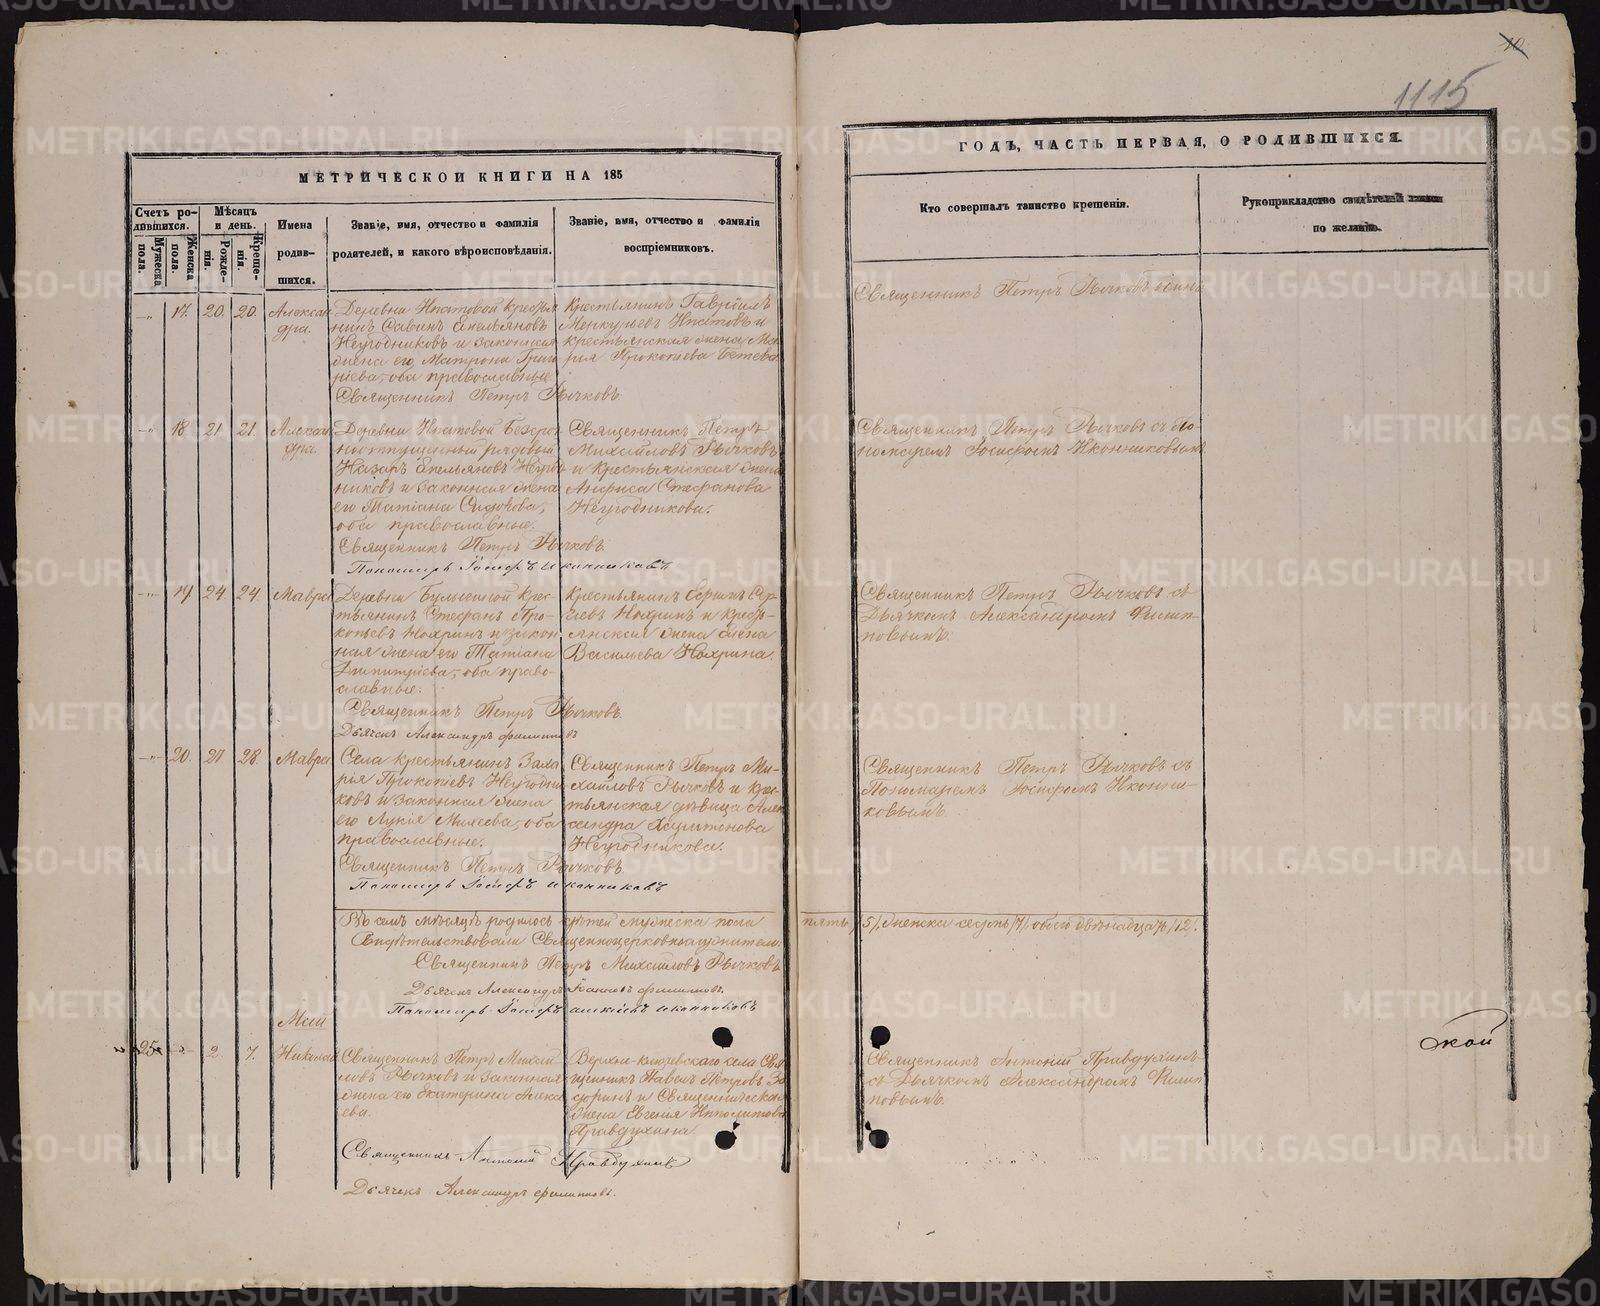 10
1115
МЕТРИЧЕСКОЙ КНИГИ НА 185
ГОДЪ, ЧАСТЬ ПЕРВАЯ, О РОДИВШИХСЯ.
Счетъ родившихся.
Мужеска пола.
Женска пола.
Мѣсяцъ и день.
Рожденія.
Крещенія.
Имена родившихся.
Званіе, имя, отчество и фамилія родителей, и какого вѣроисповѣданія.
Званіе, имя, отчество и фамилія воспріемниковъ.
Кто совершалъ таинство крещенія.
Рукоприкладство свидѣтелей записи по желанію.
17. 20. 20. Александра.
Деревни Ипатовой Кресть
нинъ Савинъ Емельяновъ
Неугодниковъ и законная
жена его Матрона Григо
рьева, оба православные.
Священникъ Петръ Рычковъ.
Крестьянинъ Гавріилъ
Меркурьевъ Ипатовъ и
крестьянская жена Ма
рія Прокопьева
Священникъ Петръ Рычковъ одинъ
18. 21 21. Александра.
Деревни Ипатовой Безсро
чноотпущенный рядовый
Назаръ Емельяновъ Неугод
никовъ и законная жена
его Татіана
оба православные.
Священникъ Петръ Рычковъ.
Пономарь Іосифъ Иконниковъ
Священникъ Петръ
Михайловъ Рычковъ
и крестьянская жена
Анфиса Стефанова
Неугодникова.
Священникъ Петръ Рычковъ съ По
номаремъ Іосифомъ Иконниковымъ
19 24 24. Мавра
Деревни Крес
тьянинъ Стефанъ Про
копьевъ Нохринъ и закон
ная жена его Татіана
Димитріева, оба право
славные.
Священникъ Петръ Рычковъ.
Дьячекъ Александръ Филипповъ
Крестьянинъ
Нохринъ и кресть
янская жена Елена
Васильева Нохрина.
Священникъ Петръ Рычковъ съ
Дьячкомъ Александромъ Филип
повымъ.
20. 27 28. Мавра
Села крестьянинъ Заха
рія Прокопіевъ Неугодни
ковъ и законная жена
его Лукія Михеева, оба
православные.
Священникъ Петръ Рычковъ
Пономарь Іосифъ Иконниковъ
Священникъ Петръ Ми
хайловъ Рычковъ и крес
тьянская дѣвица Алек
сандра Харитонова
Неугодникова.
Священникъ Петръ Рычковъ съ
Пономаремъ Іосифомъ Иконни
ковымъ.
Въ семъ мѣсяцѣ родилось дѣтей мужеска пола пять /5/, женска семь /7/ обоего двѣнадцать /12/.
Свидѣтельствовали Священноцерковнослужители
Священникъ Петръ Михайловъ Рычковъ
Дьячекъ Александръ Іоанновъ Филипповъ.
Пономарь Іосифъ Иконниковъ
Май
25 2. 7. Николай
Священникъ Петръ Михай
ловъ Рычковъ и законная
жена его Екатерина Алексе
ева.
Верхне-Ключевскаго села Свя
щенникъ Павелъ Петровъ
и Священническая
жена Евгенія Ипполитова
Правдухина
Священникъ Антоній Правдухинъ
съ Дьячкомъ Александромъ Филип
повымъ.
Священникъ Антоній Правдухинъ
Дьячекъ Александръ Филипповъ.
ской
METRIKI.GASO-URAL.RU